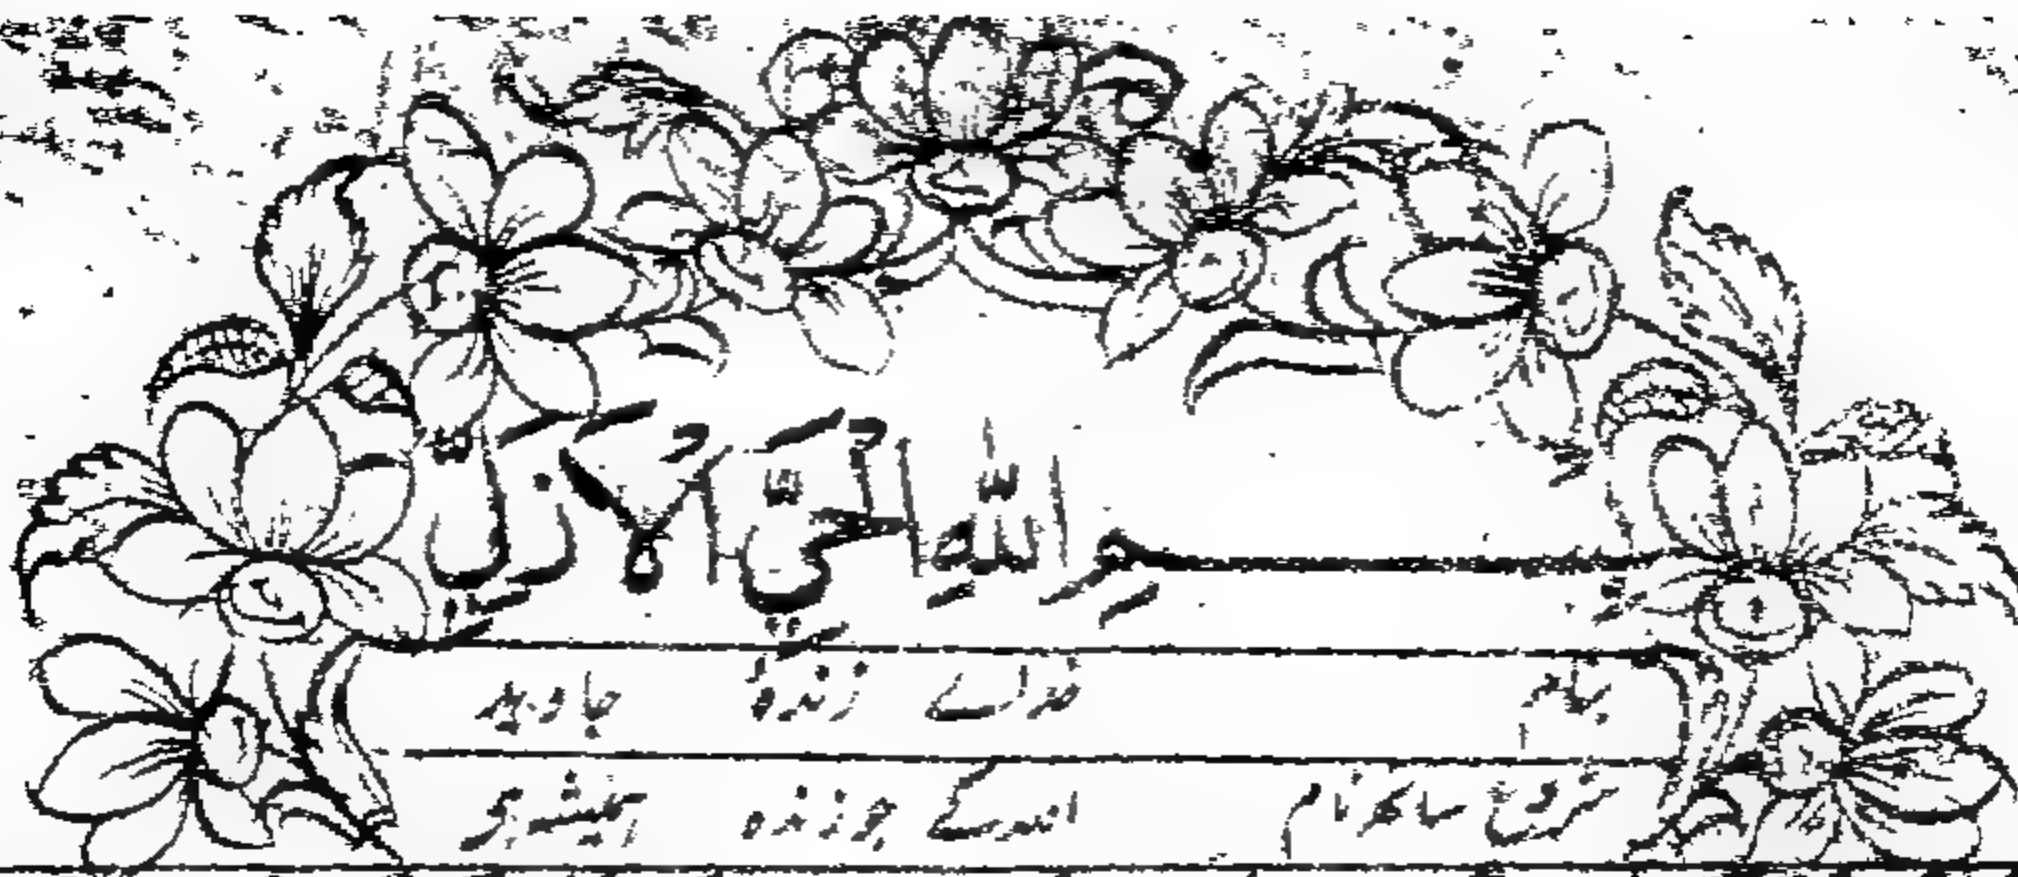 بسم اللہ الحی الازلی
بنام خداے زندہٴ جاوید
شروع ساتھ نام اللہ کے جو زندہ ہمیشہ ہی